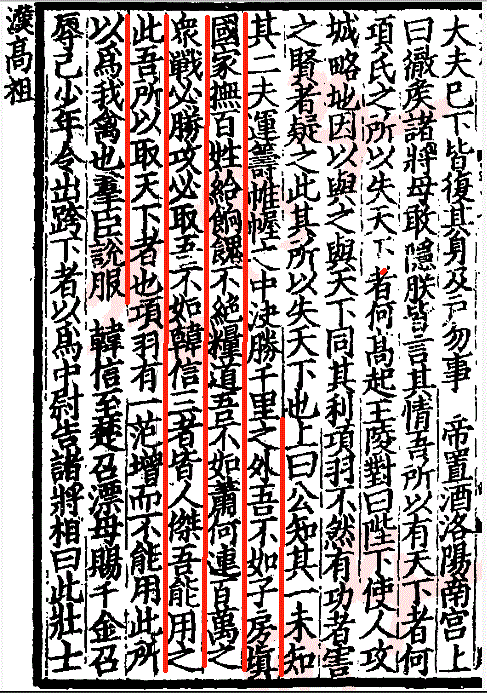 大夫已下皆復其身及戶勿事　帝置酒洛陽南宮上
曰徹矦諸將母敢隱朕皆言其情吾所以有天下者何
項氏之所以失天下者何髙起王陵對曰陛下使人攻
城略地因以與之與天下同其利項羽不然有功者害
之賢者疑之此其所以失天下也上曰公知其一未知
其二夫運籌帷幄之中決勝千里之外吾不如子房塡
國家撫百姓給餉餽不絕糧道吾不如蕭何連百萬之
衆戰必勝攻必取吾不如韓信三者皆人傑吾能用之
此吾所以取天下者也項羽有一范增而不能用此所
以爲我禽也羣臣說服　韓信至楚召漂母賜千金召
辱己少年令出跨下者以爲中尉告諸將相曰此壯士
漢髙祖